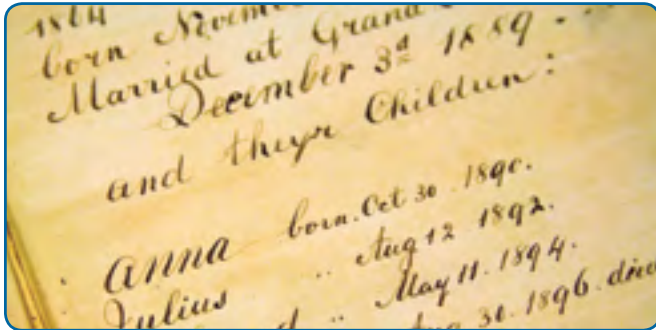 born
Married at Grand
December 3d 1889.
and theyr Children:
Anna born. Oct 30. 1890.
Julius " Aug 12 1892.
" May 11. 1894.
Aug 31. 1896.